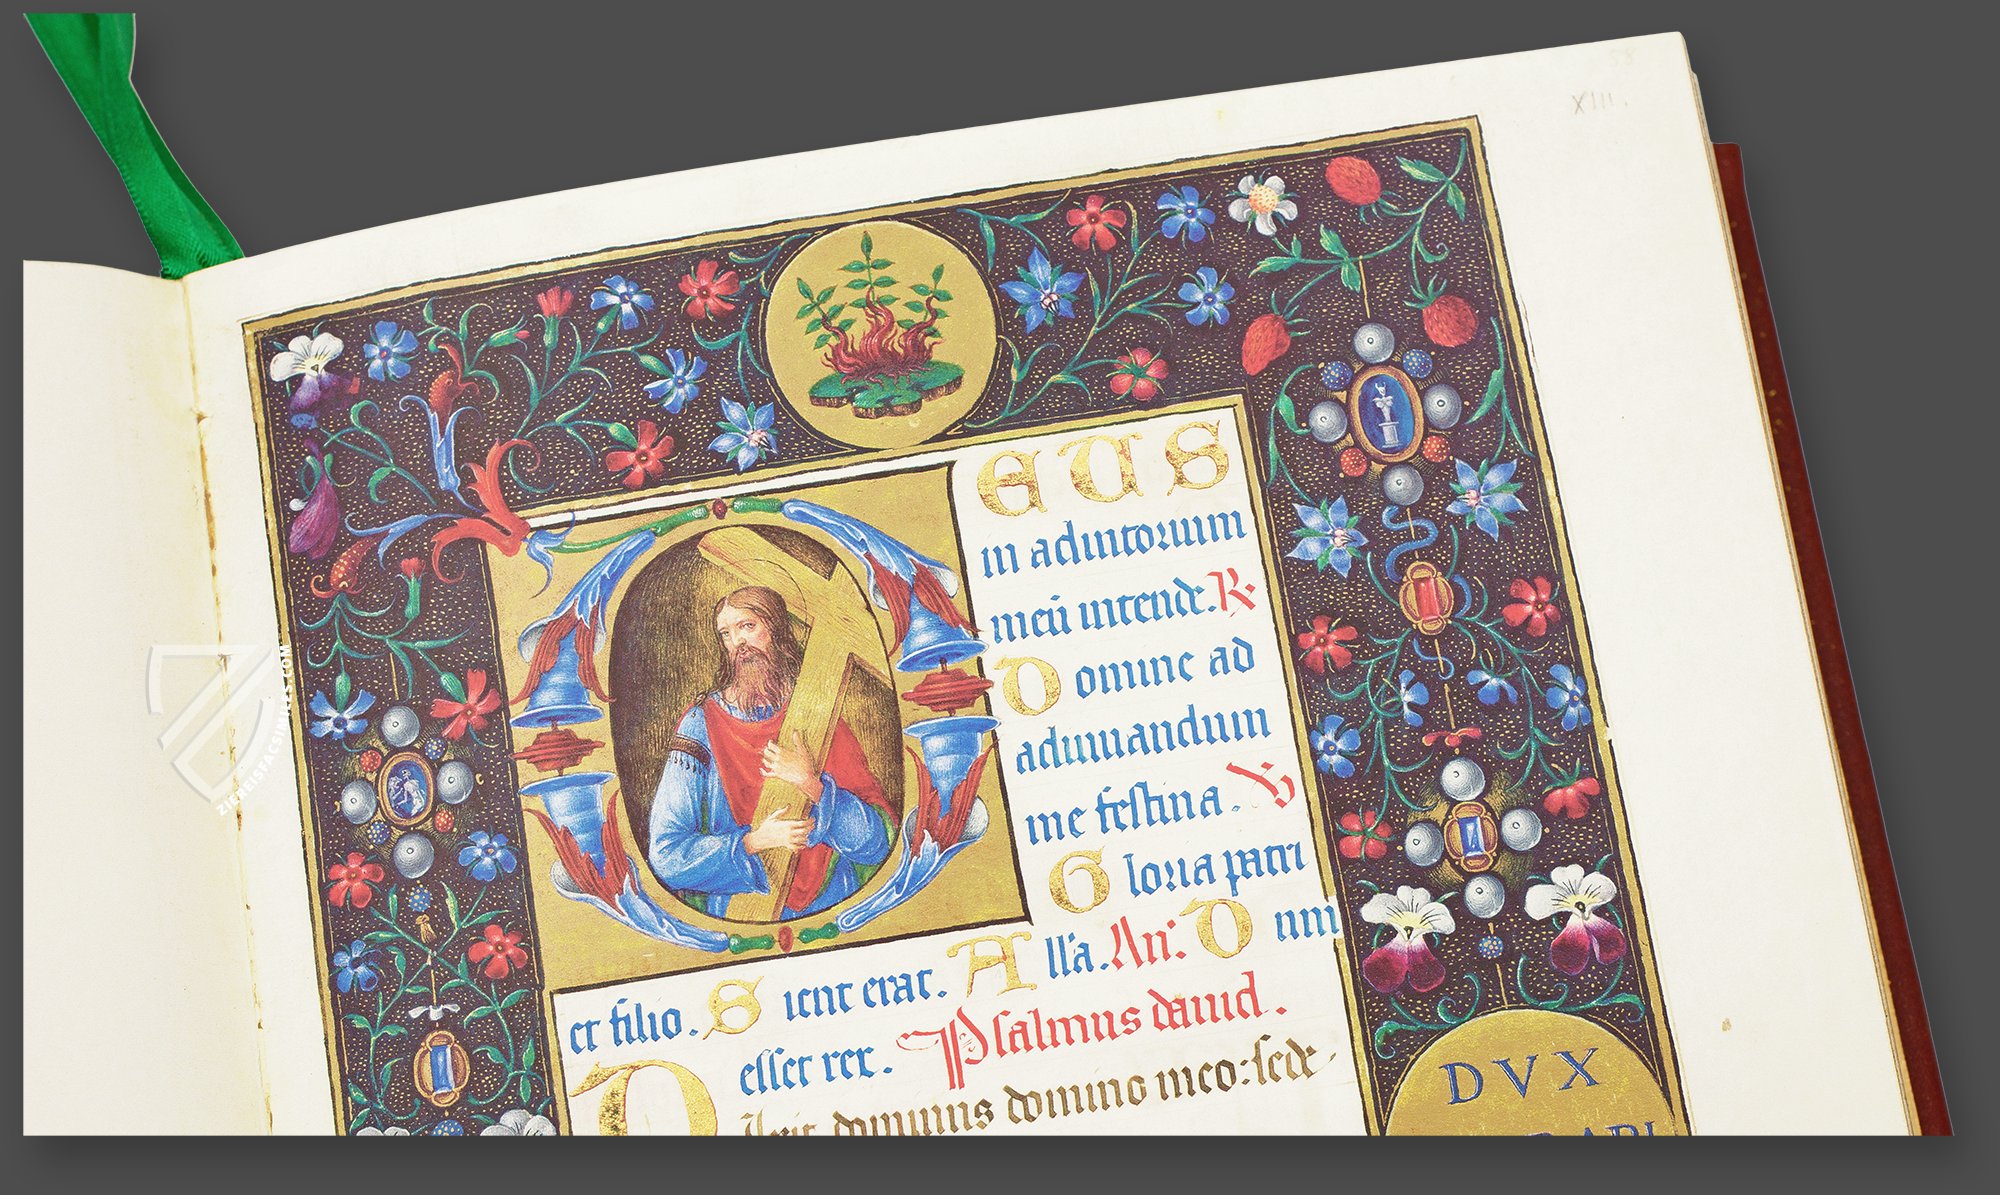 58
XIII.
DEUS
in adiutorium
meū intende. R
Domine ad
adiuuandum
me festina. V
Gloria patri
et filio. Sicut erat. All'a. An̄. Dum
esset rex. Psalmus dauid.
Dixit dominus domino meo: sede
DVX
ZIEREISFACSIMILES.COM